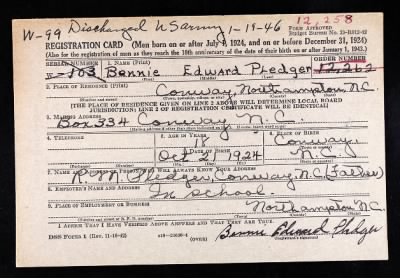 12,258
W-99 Discharged U S army 1-19-46
Form Approved
REGISTRATION CARD (Men born on or after July 1, 1924, and on or before December 31, 1924)
(Also for the registration of men as they reach the 18th anniversary of the date of their birth on or after January 1, 1943.)
SERIAL NUMBER
1. NAME (Print)
ORDER NUMBER
W-103 Bennie Edward Pledger 12,262
(First) (Middle) (Last)
2. PLACE OF RESIDENCE (Print)
Conway, Northampton, N.C.
[THE PLACE OF RESIDENCE GIVEN ON LINE 2 ABOVE WILL DETERMINE LOCAL BOARD
JURISDICTION; LINE 2 OF REGISTRATION CERTIFICATE WILL BE IDENTICAL]
3. MAILING ADDRESS
Box 334 Conway N.C.
4. TELEPHONE
5. AGE IN YEARS
6. PLACE OF BIRTH
18
Conway
DATE OF BIRTH
Oct 21 1924
N.C.
7. NAME AND ADDRESS OF PERSON WHO WILL ALWAYS KNOW YOUR ADDRESS
P. M. Pledger, Conway, N.C. (Father)
8. EMPLOYER'S NAME AND ADDRESS
In school.
9. PLACE OF EMPLOYMENT OR BUSINESS
Northampton N.C.
I AFFIRM THAT I HAVE VERIFIED ABOVE ANSWERS AND THAT THEY ARE TRUE.
DSS Form 1 (Rev. 11-16-42)
(OVER)
Bennie Edward Pledger
(Registrant's signature)